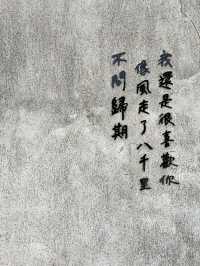 我還是很喜歡你
像風走了八千里
不問歸期